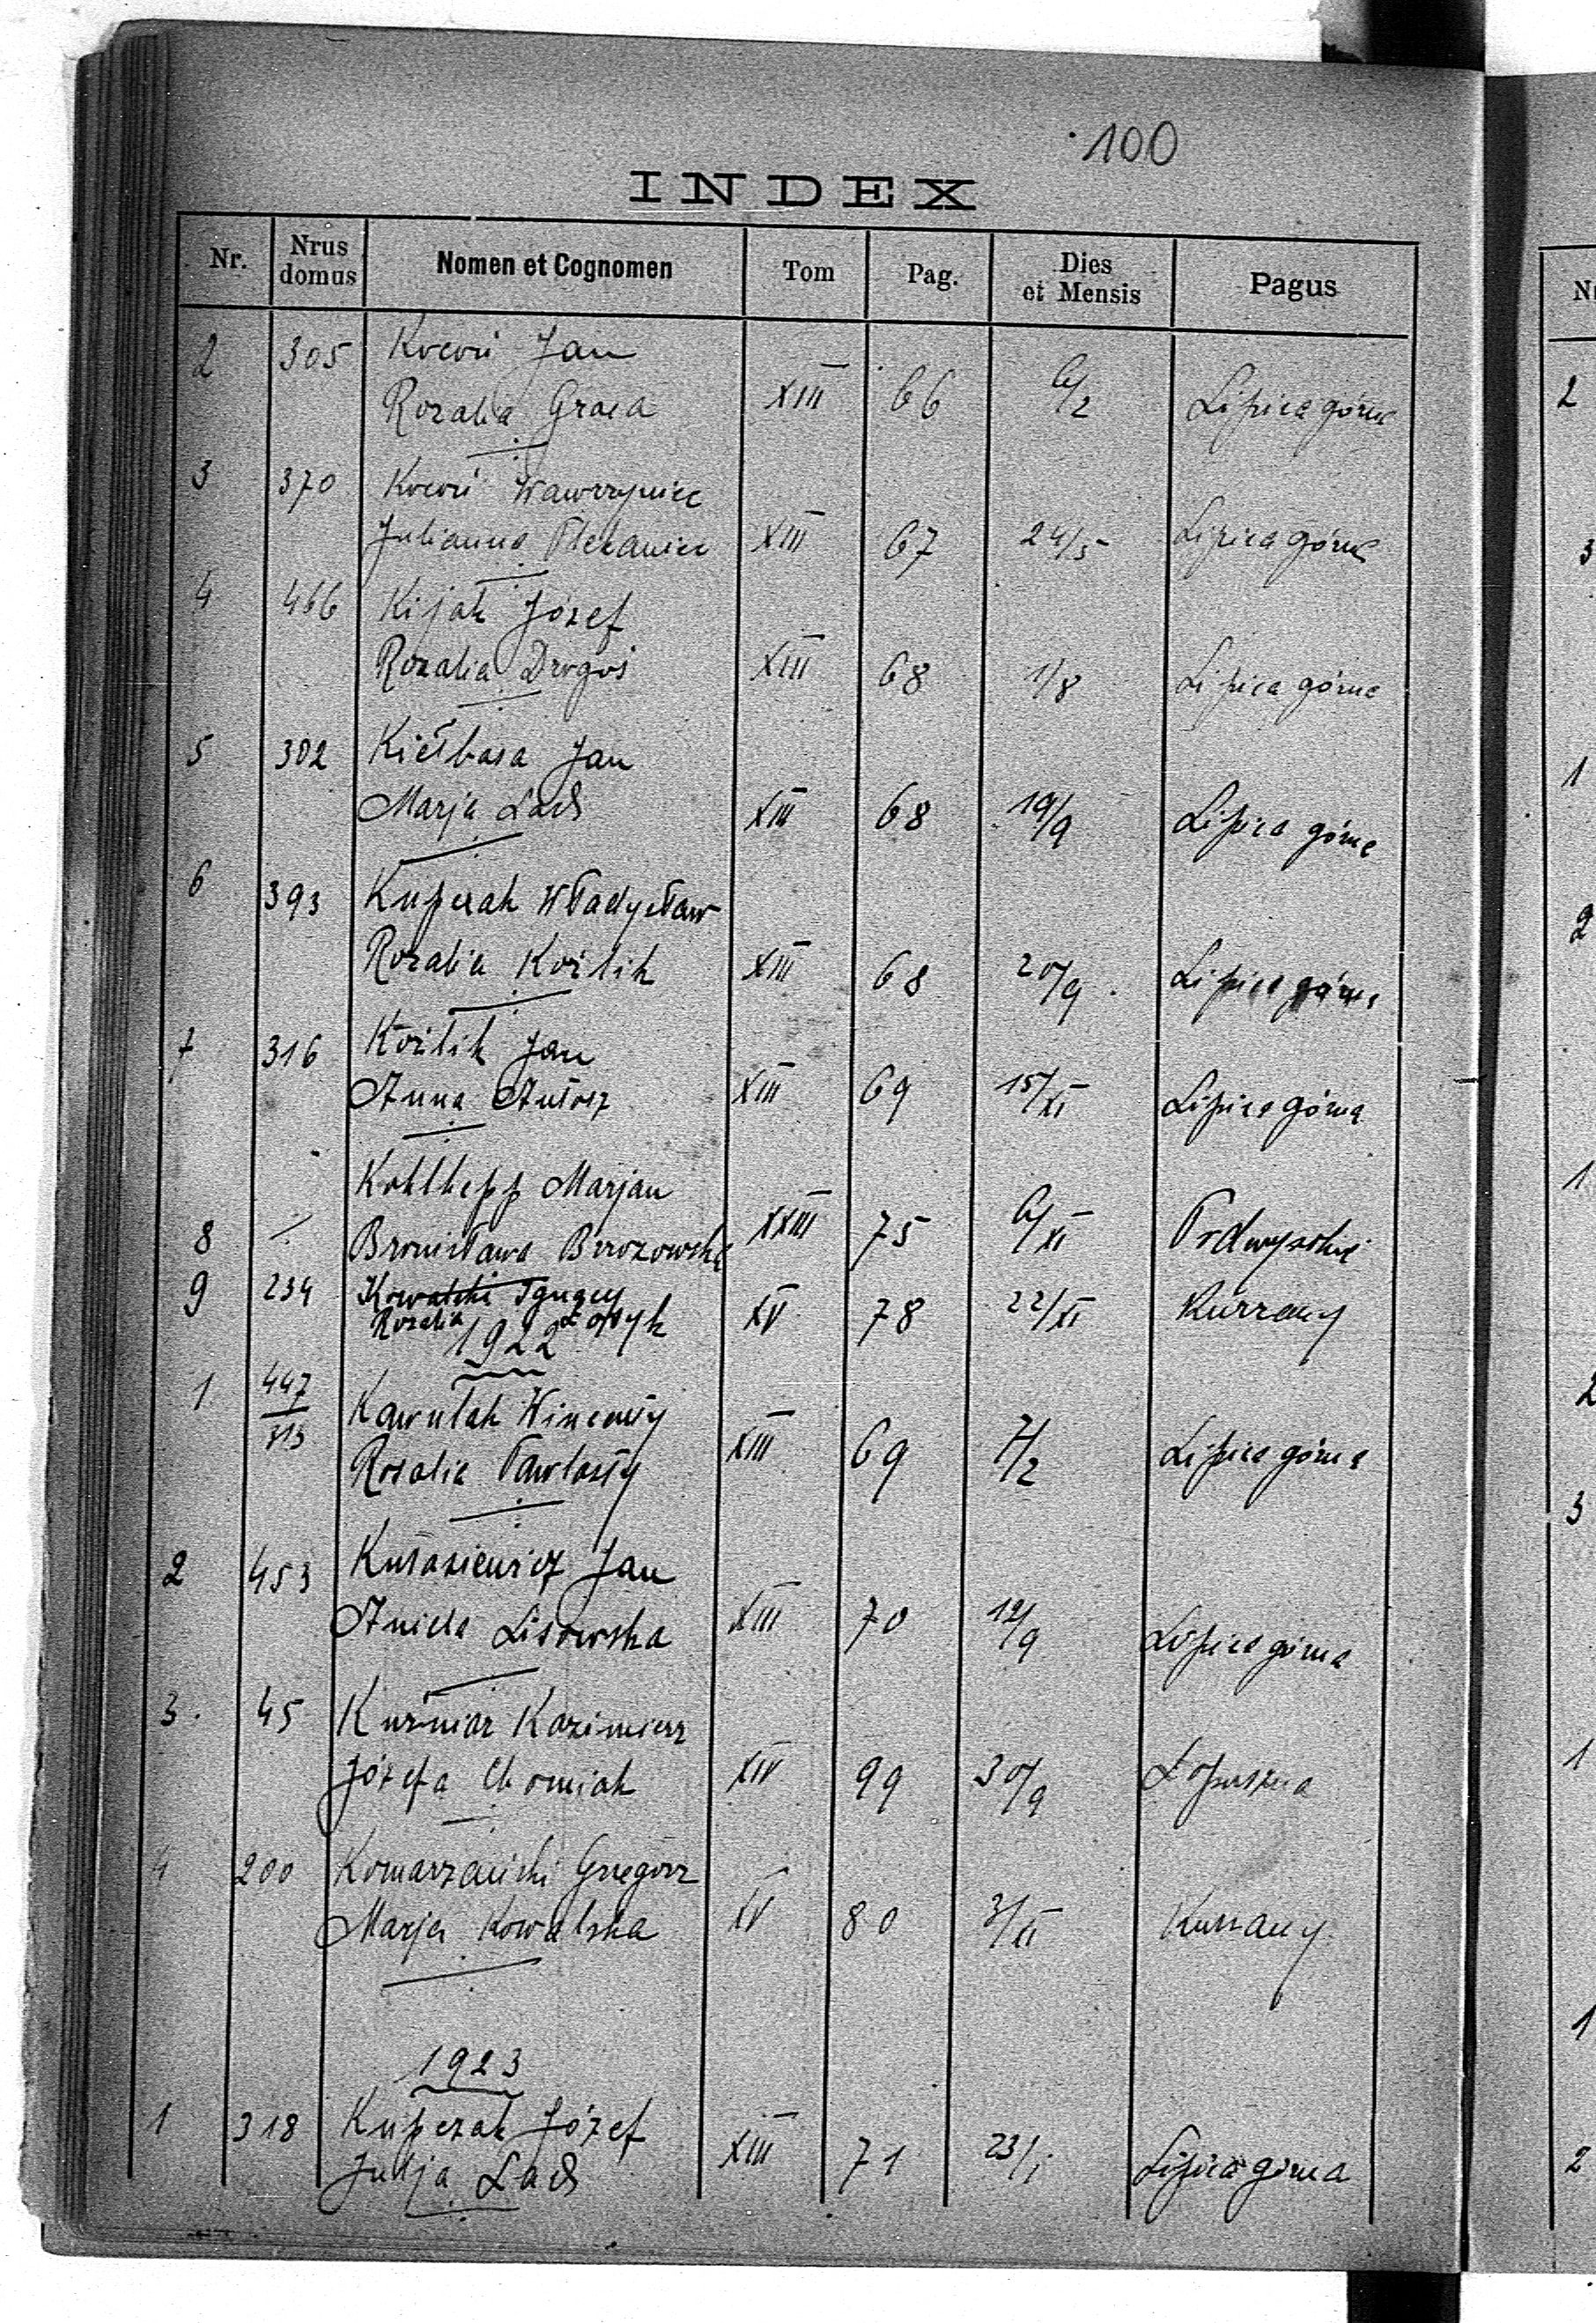 100
INDEX
Nr. Nrus domus Nomen et Cognomen Tom Pag. Dies et Mensis Pagus
2 305 Kocoń Jan
Rozalia Graca XIII 66 6/2 Lipica górna
3 370 Kocoń Wawrzyniec
Julianna XIII 67 24/5 Lipica górna
4 466 Kijak Józef
Rozalia Drogoś XIII 68 1/8 Lipica górna
5 302 Kiełbasa Jan
Marja Lach XIII 68 19/9 Lipica górna
6 393 Kuperak Władysław
Rozalia Koźlik XIII 68 20/9 Lipica górna
7 316 Koźlik Jan
Anna Antosz XIII 69 15/XI Lipica górna
Kohlhepp Marjan
8 Bronisława Brzozowska XXIII 75 6/XI Podwysokie
9 234 Kowalski Ignacy
Rozalia Łopyk XV 78 22/XI Kurzany
1922
1 447/513 Kawulak Wincenty
Rozalia Pawlosty XIII 69 7/2 Lipica górna
2 453 Kułasiewicz Jan
Aniela Lisowska XIII 70 12/9 Lipica górna
3. 45 Kuźniar Kazimierz
Józefa Chomiak XIV 99 30/9 Łopuszna
4 200 Komarzański Grzegorz
Marja Kowalska XV 80 3/XI Kurzany
1923
1 318 Kuperak Józef
Julja Lach XIII 71 23/I Lipica górna